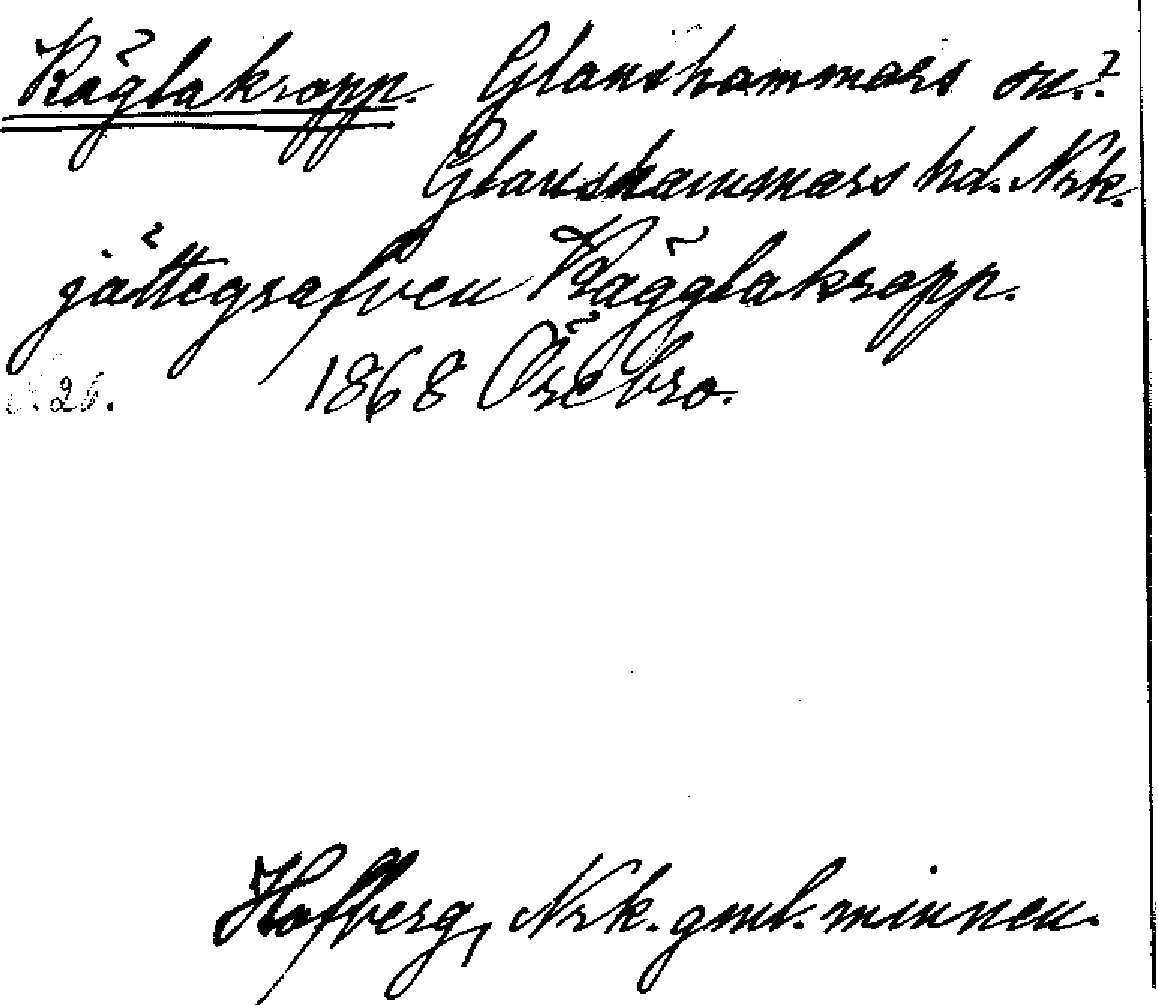 Käglakropp. Glanshammars sn.?
Glanshammars hd. Nrk.
jättegrafven Kägglakropp.
26. 1868 Örebro.
Hofberg, Nrk. gml. minnen.